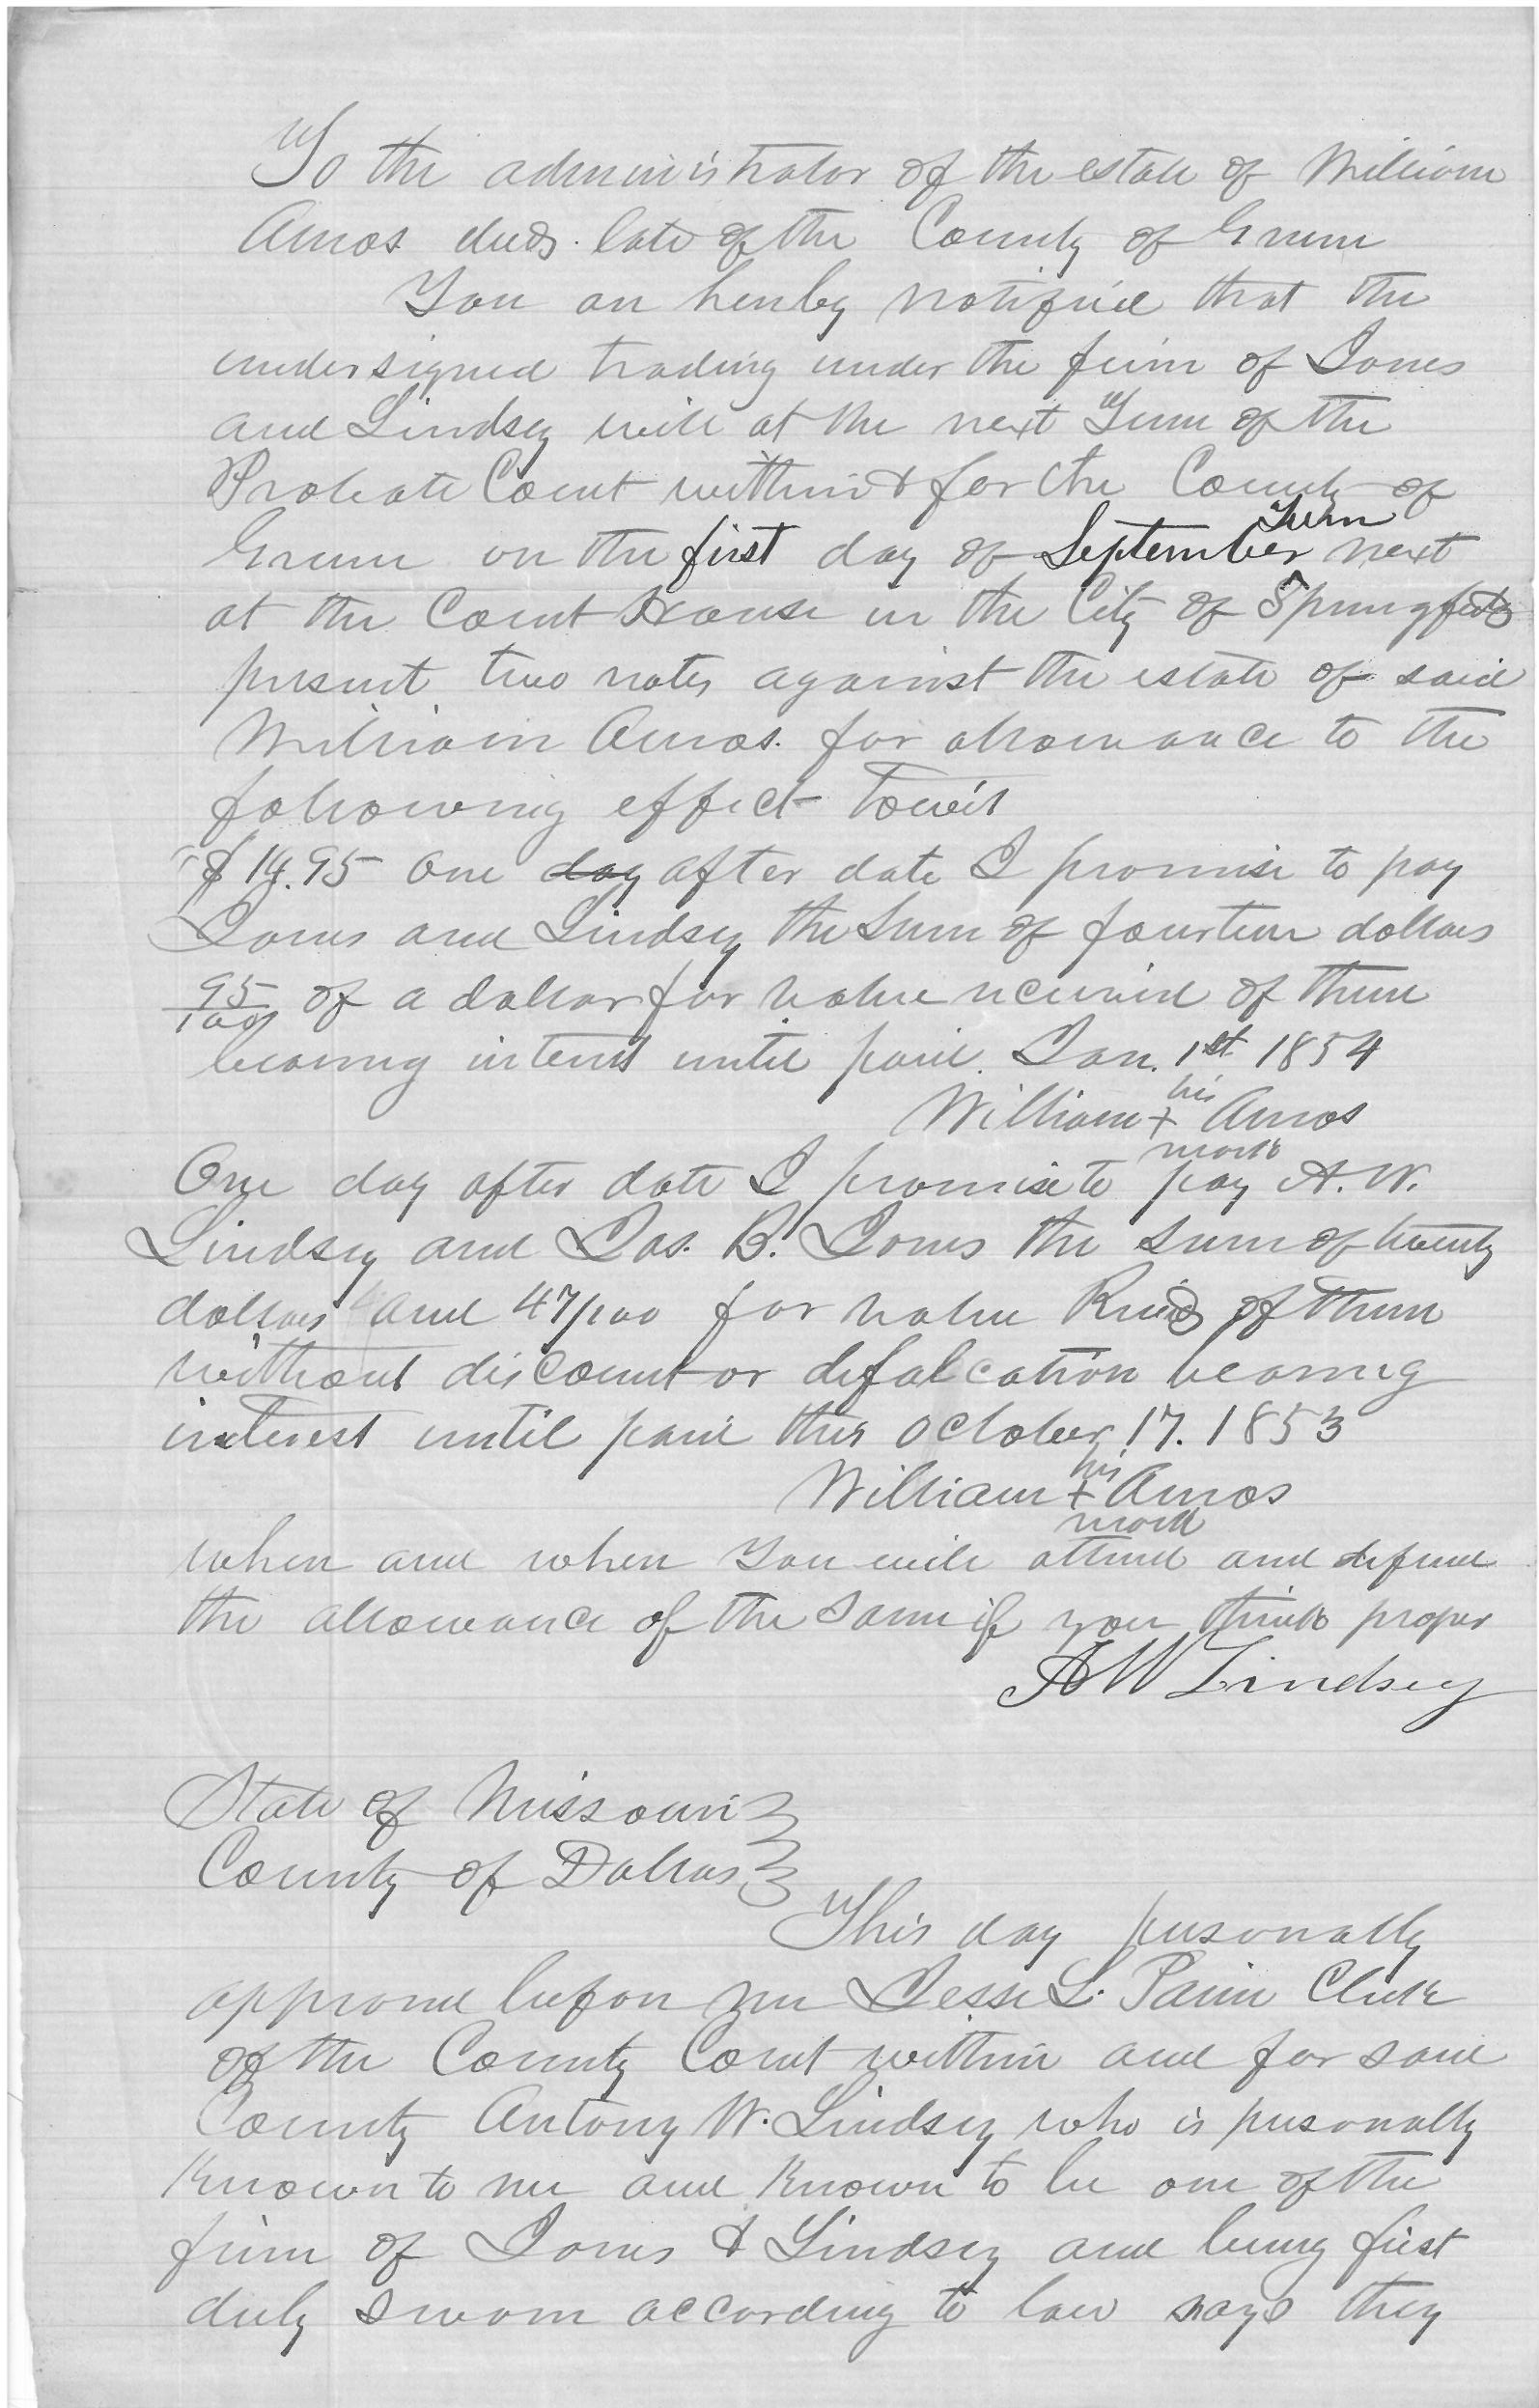 To the administrator of the estate of William
Amos decd. late of the County of Greene
You are hereby notified that the
undersigned trading under the firm of Jones
and Lindsey will at the next Term of the
Probate Court within & for the County of
Greene on the first day of September Term next
at the Court House in the City of Springfield
present two notes against the estate of said
William Amos. for allowance to the
following effect Towit
"$14.95 One day after date I promise to pay
Jones and Lindsey the Sum of fourteen dollars
95/100 of a dollar for value received of them
bearing interest until paid. Jan. 1st 1854
William his + mark Amos
One day after date I promise to pay A. W.
Lindsey and Jas. B. Jones the sum of twenty
dollars and 47/100 for value Recd of them
without discount or defalcation bearing
interest until paid this October 17. 1853
William his + mark Amos
when and when you will attend and defend
the allowance of the same if you think proper
A W Lindsey
State of Missouri
County of Dallas
This day personally
appeared before me Jesse L. Paine Clerk
of the County Court within and for said
County Antony W. Lindsey who is personally
Known to me and Known to be one of the
firm of Jones & Lindsey and being first
duly sworn according to law says they